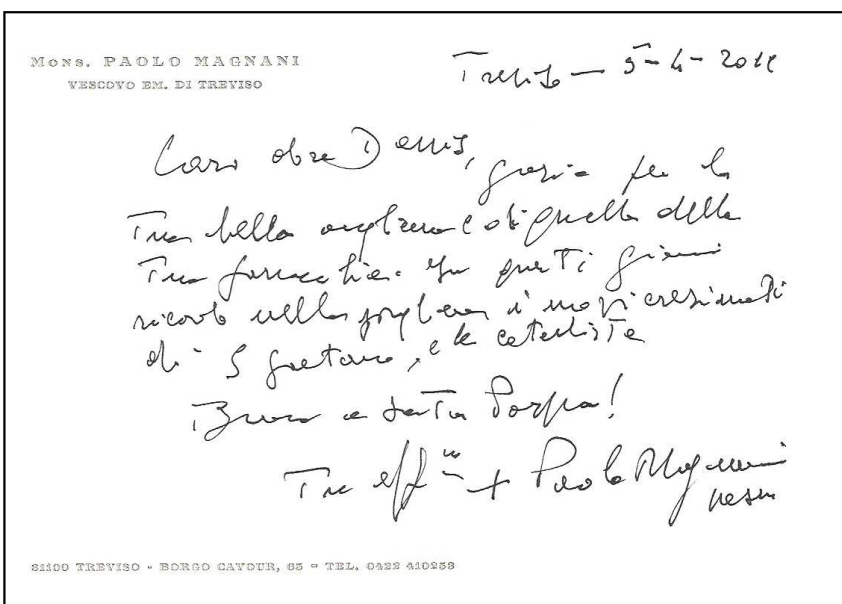 MONS. PAOLO MAGNANI
VESCOVO EM. DI TREVISO
Treviso - 5-4-
Caro don Denis, grazie per la
Tua bella e di quella della
Tua parrocchia. In questi giorni
ricordo nella preghiera i novi cresimati
di S Gaetano, e le catechiste
Buona e Santa Pasqua!
Tuo aff.mo + Paolo Magnani
vescovo
31100 TREVISO - BORGO CAVOUR, 65 - TEL. 0422 410253